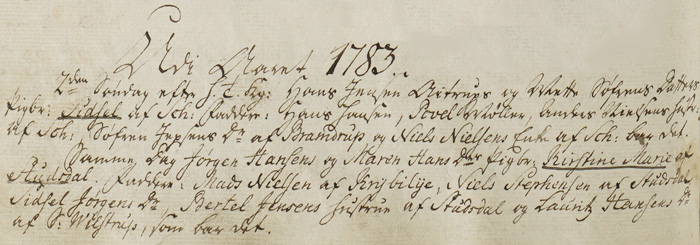 Udi Aaret 1783.
2den Søndag efter H. 3 Kg: Hans Jensen Aitrups og Mette Søfrens Datters
Pigbr: Sidsel af Sch: Fadder: Hans Hansen, Povel Møller, Anders Nielsens Hustr:
af Sch: Søfren Jepsens Dr af Bramdrup og Niels Nielsens Enke af Sch: bar det.
Samme Dag Jørgen Hansens og Maren Hans Dtr Pigbr. Kirstine Marie af
Studsdal, Faddere: Mads Nielsen af Krybilye, Niels Stephensen af Studsdal
Sidsel Jørgens Dr, Bertel Jensens Hustrue af Studsdal og Lauritz Hansens Dr
af S: Wilstrup, som bar det.